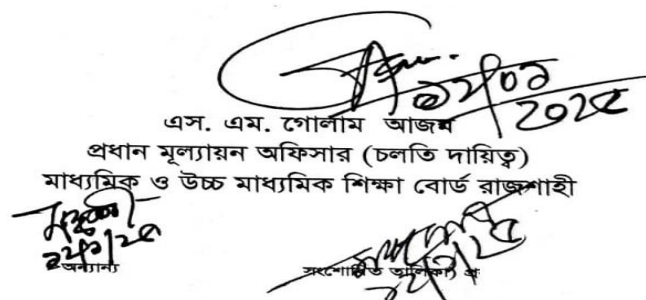 ১২/০১
২০২৫
এস. এম. গোলাম আজম
প্রধান মূল্যায়ন অফিসার (চলতি দায়িত্ব)
মাধ্যমিক ও উচ্চ মাধ্যমিক শিক্ষা বোর্ড রাজশাহী
অন্যান্য
সংশোধিত তালিকা